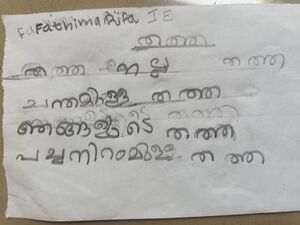 Fathima Rifa IE
തത്ത
തത്ത നല്ല തത്ത
ചന്തമുള്ള തത്ത
ഞങ്ങളുടെ തത്ത
പച്ചനിറമുള്ള തത്ത